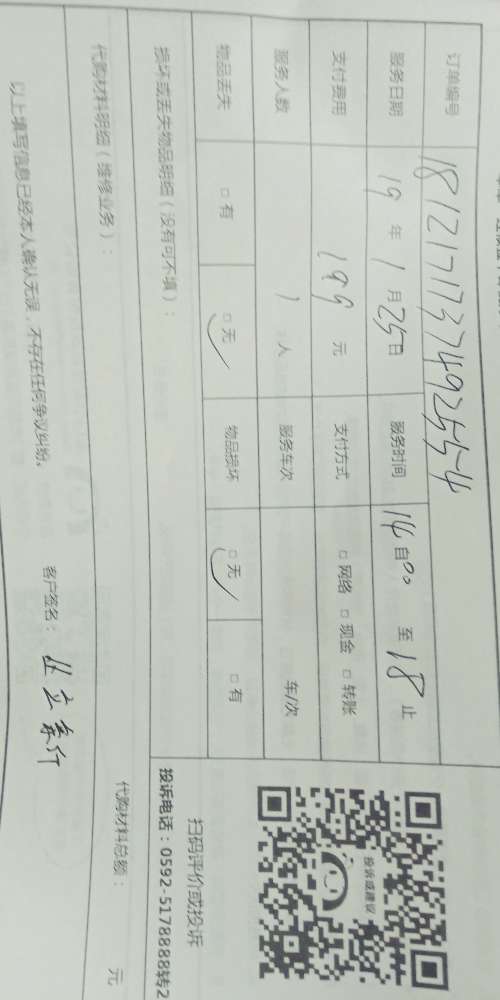 订单编号 1812171737492554
服务日期 19 年 1 月 25 日 服务时间 14 自 00 至 18 止
支付费用 199 元 支付方式 □ 网络 □ 现金 □ 转账
服务人数 1 人 服务车次 车/次
物品丢失 □ 有 □ 无 物品损坏 □ 无 □ 有
损坏或丢失物品明细（没有可不填）：
代购材料明细（维修业务）：
代购材料总额： 元
以上填写信息已经本人确认无误，不存在任何争议纠纷。
客户签名：
投诉或建议
扫码评价或投诉
投诉电话：0592-5178888转2